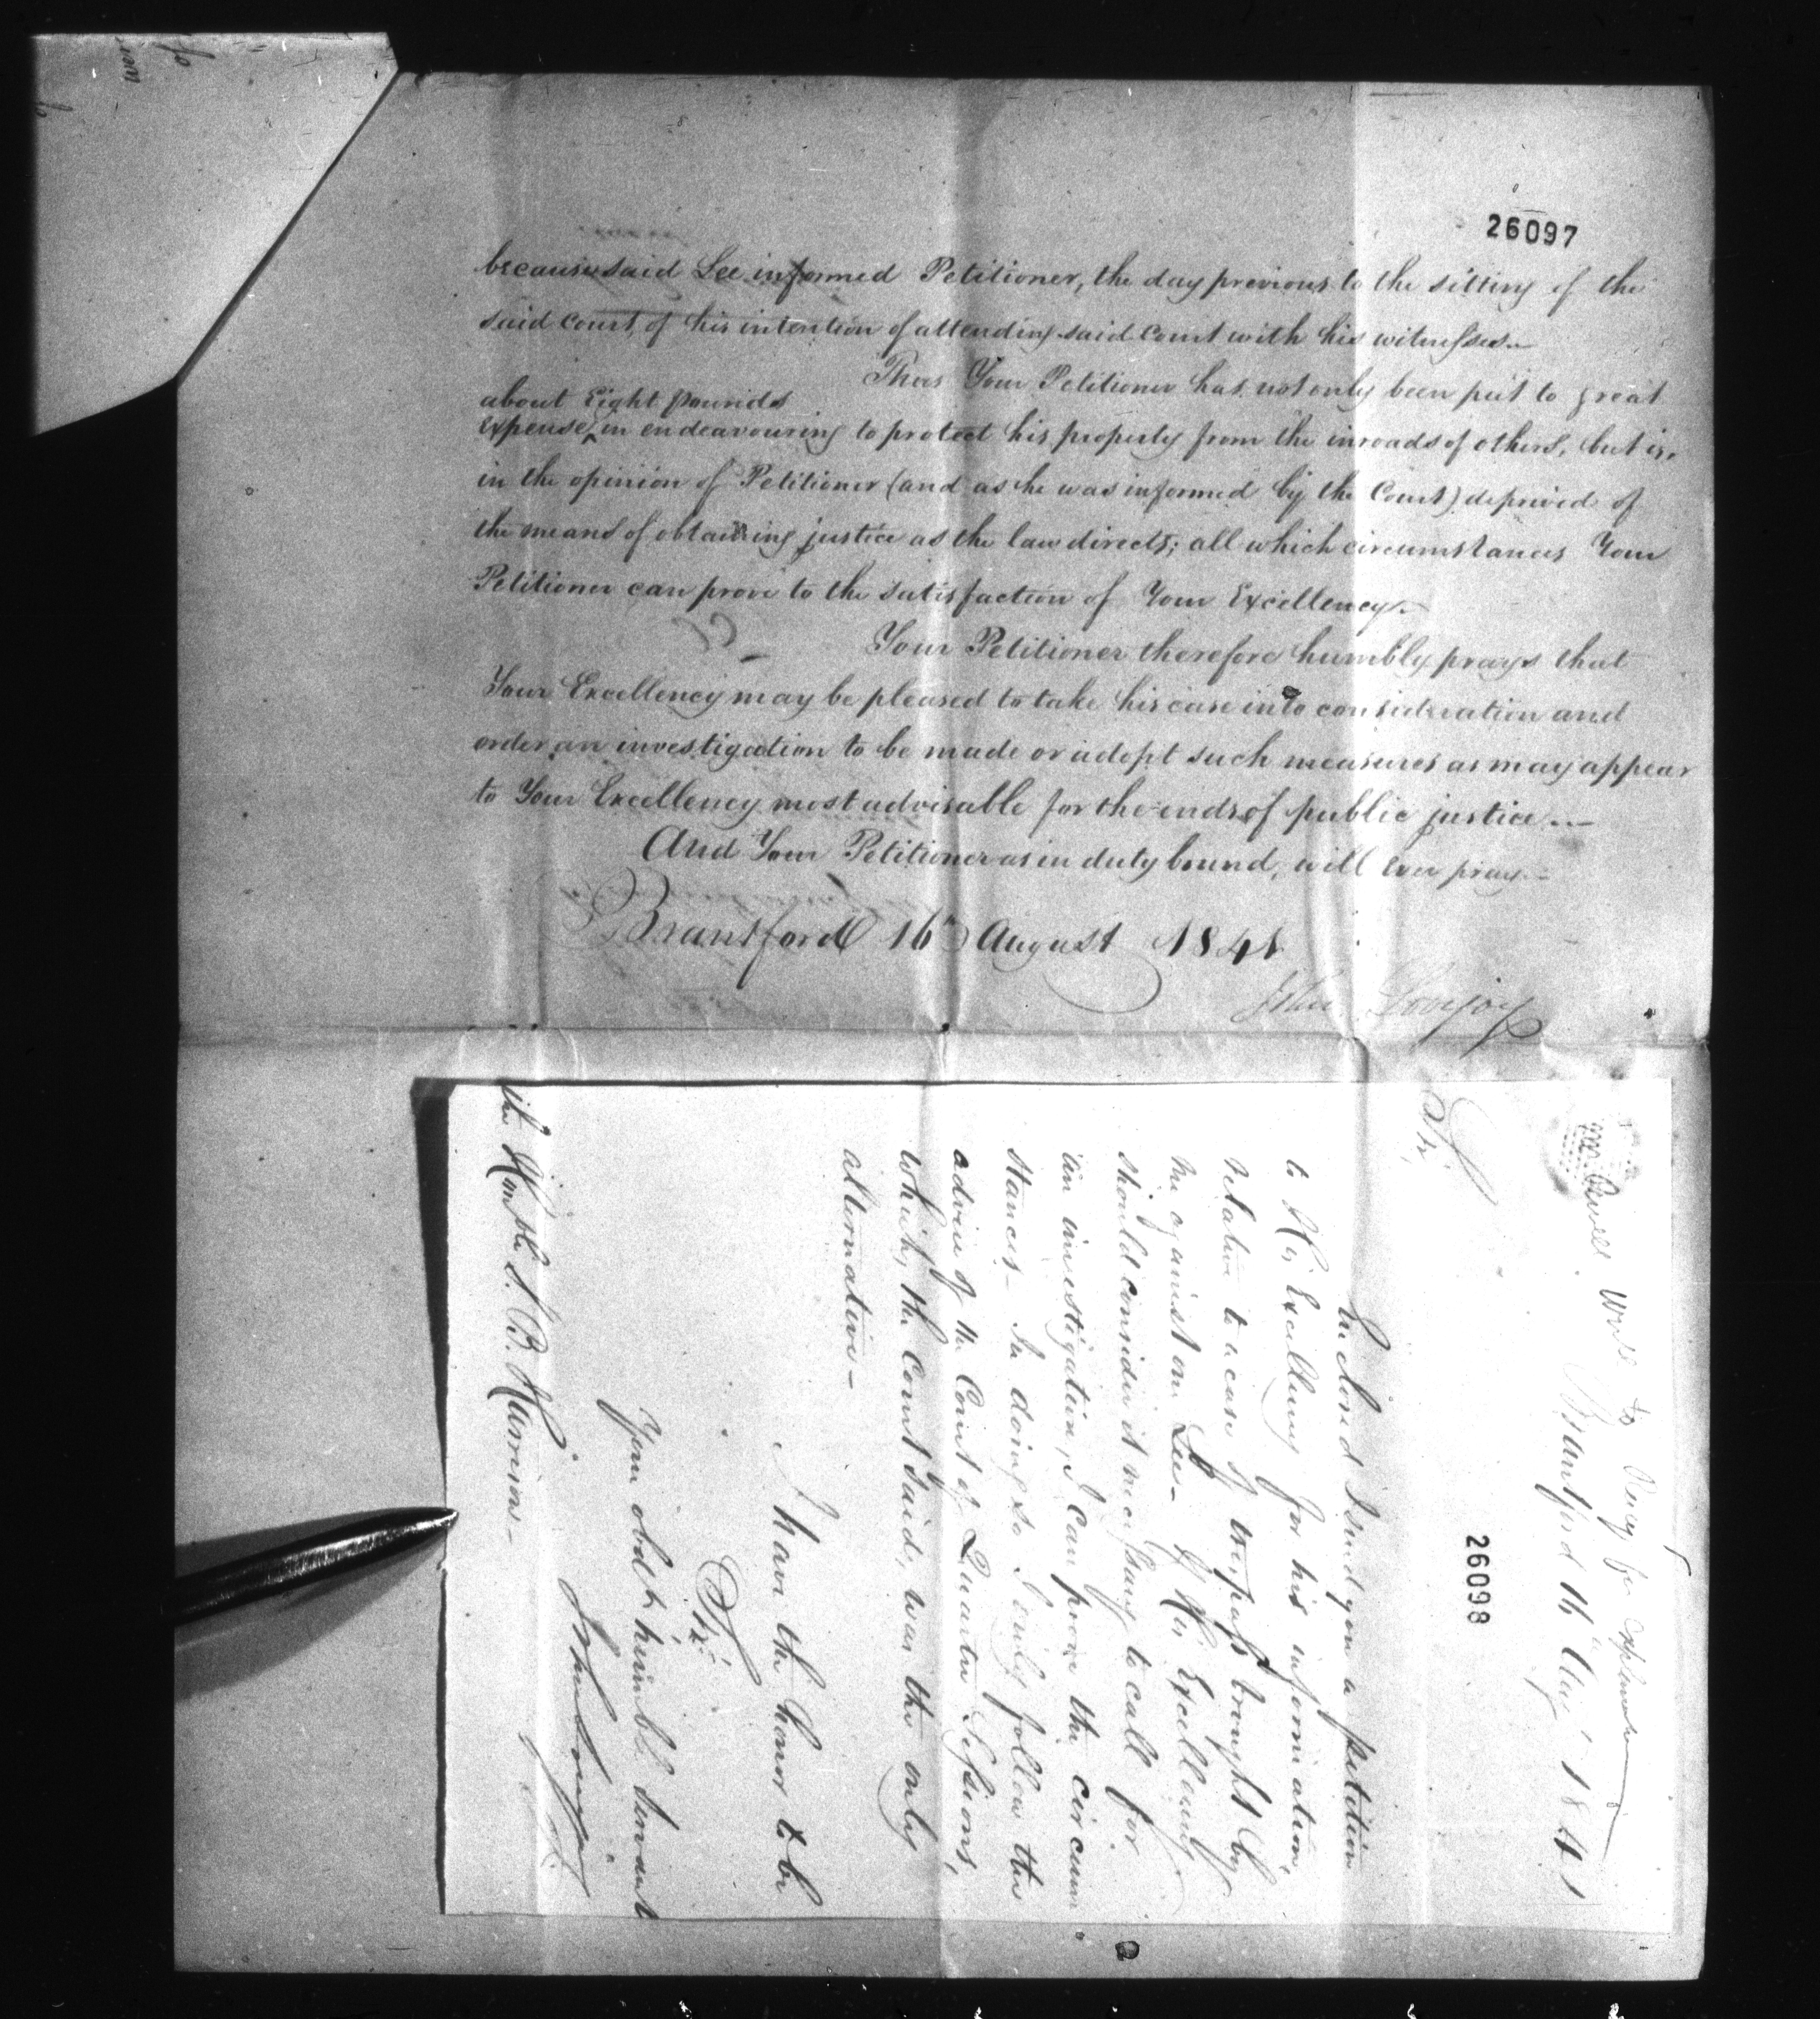 26097
because said Lee informed Petitioner, the day previous to the sitting of the
said court, of his intention of attending said court with his witnesses.
Thus Your Petitioner has not only been put to great
about Eight pounds
expense ^ in endeavouring to protect his property from the inroads of others, but is,
in the opinion of Petitioner (and as he was informed by the Court) deprived of
the means of obtaining justice as the law directs; all which circumstances Your
Petitioner can prove to the satisfaction of Your Excellency.
Your Petitioner therefore humbly prays that
Your Excellency may be pleased to take his case into consideration and
order an investigation to be made or adopt such measures as may appear
to Your Excellency most advisable for the ends of public justice.
And Your Petitioner as in duty bound, will ever pray.
Brantford 16th August 1841
John Lovejoy
wrote to
Brantford 16 Aug 1841
26098
Sir,
Enclosed I send you a petition
to His Excellency for his information
relative to a case of trespass brought by
me against one Lee - If His Excellency
should consider it necessary to call for
an investigation, I can prove the circum
stances - In doing so I only follow the
advice of the Court of Quarter Sessions,
which, the Court said, was the only
alternative -
I have the honor to be
Sir
Your obdt humble Servant
John Lovejoy
The Honble S. B. Harrison -